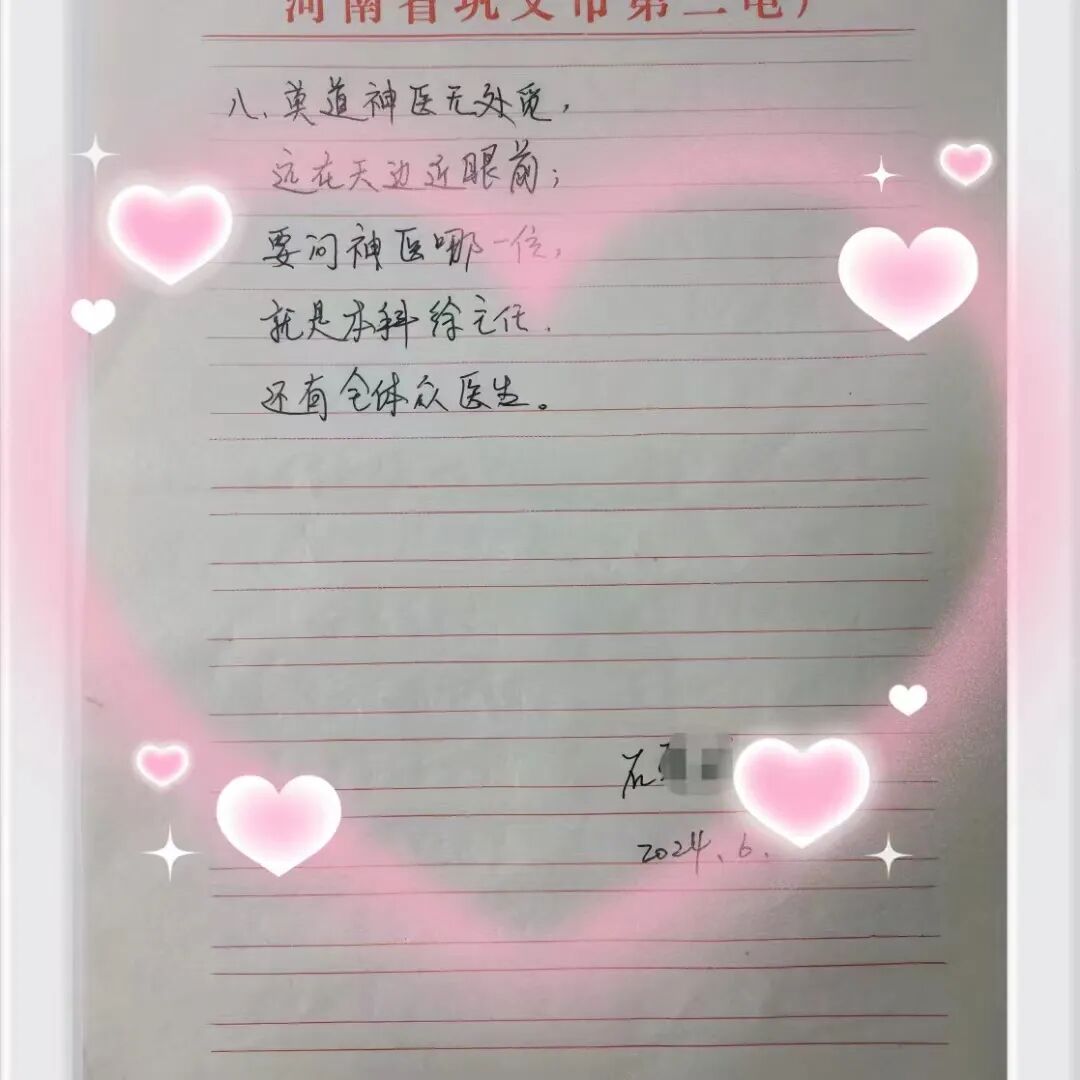 河南省巩义市第二电厂
八、莫道神医无处觅,
远在天边近眼前;
要问神医哪一位,
就是本科徐主任.
还有全体众医生。
2024.6.